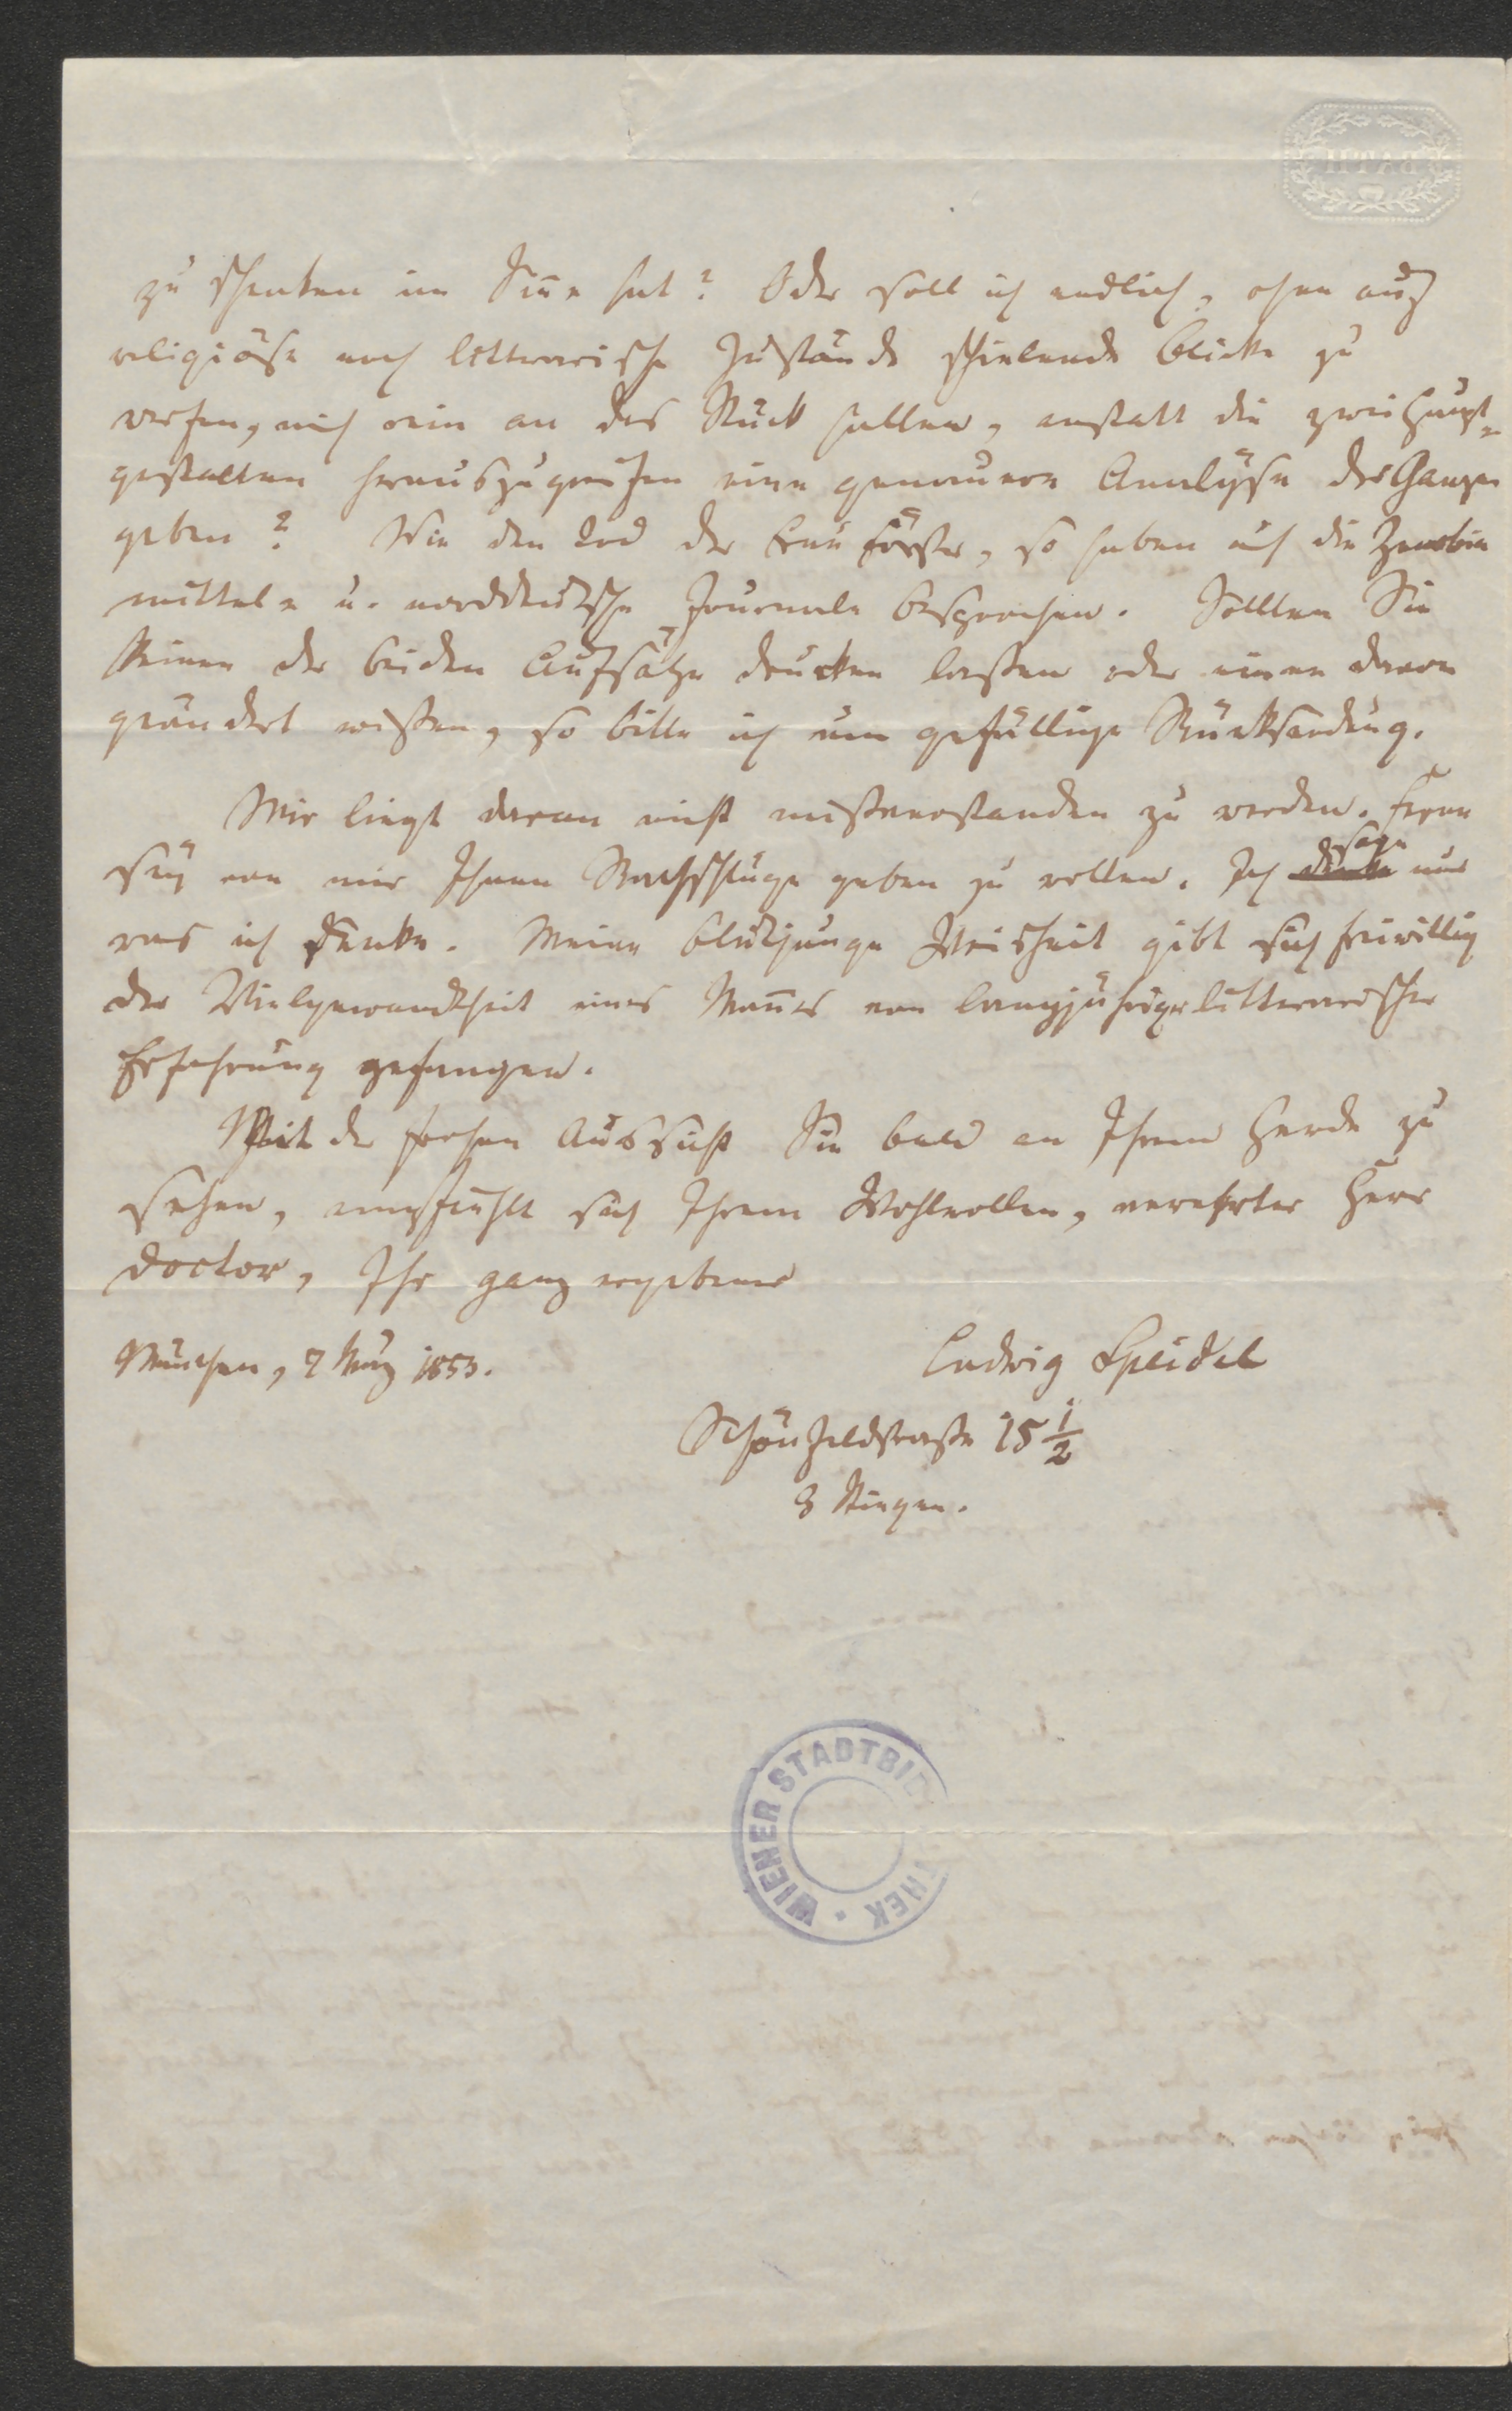 BATH
zu schenken im Sinne hat? Oder soll ich endlich, ohne auf
religiöse noch litterarische Zustände schielende Blicke zu
werfen, mich rein an das Stück halten, anstatt die zwei Haupt-
gestalten herauszugreifen eine genauere Analÿse des Ganzen
geben? Wie den der so haben auch die Zenobia
mittel- u. norddeutsche Journale besprochen. Sollten Sie
keinen der beiden Aufsätze drucken laßen oder einen davon
geändert wißen, so bitte ich um gefällige Rücksendung.
Mir liegt daran nicht mißverstanden zu werden. Ferne
seÿ von mir Ihnen Rathschläge geben zu wollen. Ich sage nur
was ich denke. Meine blutjunge Weisheit gibt sich freiwillig
der Vielgewandtheit eines Mannes von langjähriger litterarischer
Erfahrung gefangen.
Mit der frohen Aussicht Sie bald an Ihrem Herde zu
sehen, empfiehlt sich Ihrem Wohlwollen, verehrter Herr
Doctor, Ihr ganz ergebener
München, 7 März 1853.
Ludwig Speidel
Schönfeldstraße 15 1/2
3 Stiegen.
WIENER STADTBIBLIOTHEK